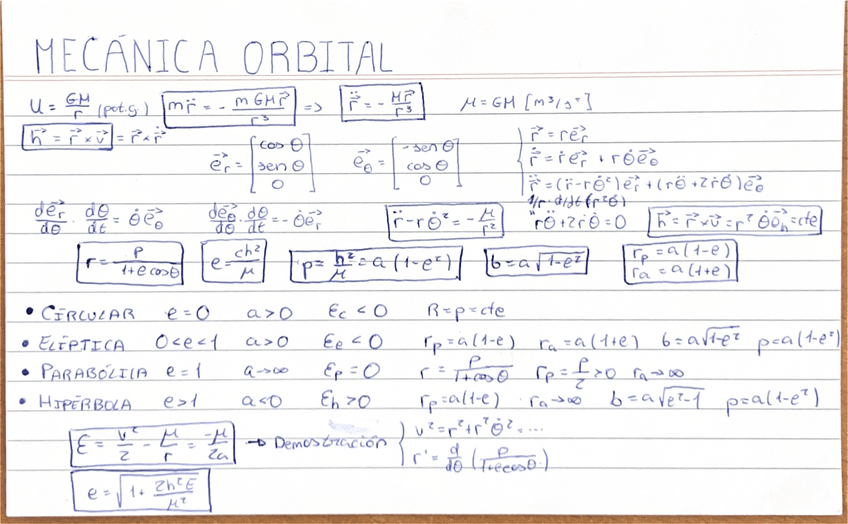 MECÁNICA ORBITAL
U = GM/r (pot.g) m r̈⃗ = - m GM r⃗/r³ => r̈⃗ = - μ r⃗/r³ μ = GM [m³/s²]
h⃗ = r⃗ × v⃗ = r⃗ × ṙ⃗
e⃗r = [cos θ, sen θ, 0] e⃗θ = [-sen θ, cos θ, 0] { r⃗ = r e⃗r
ṙ⃗ = ṙ e⃗r + r θ̇ e⃗θ
r̈⃗ = (r̈ - r θ̇²) e⃗r + (r θ̈ + 2 ṙ θ̇) e⃗θ
1/r · d/dt (r² θ̇)
de⃗r/dθ · dθ/dt = θ̇ e⃗θ de⃗θ/dθ · dθ/dt = - θ̇ e⃗r r̈ - r θ̇² = - μ/r² r θ̈ + 2 ṙ θ̇ = 0 h⃗ = r⃗ × v⃗ = r² θ̇ u⃗h = cte
r = p/(1+e cos θ) e = ch²/μ p = h²/μ = a (1-e²) b = a √(1-e²) rp = a(1-e)
ra = a(1+e)
• CIRCULAR e = 0 a > 0 Ec < 0 R = p = cte
• ELÍPTICA 0 < e < 1 a > 0 Ee < 0 rp = a(1-e) ra = a(1+e) b = a√(1-e²) p = a(1-e²)
• PARABÓLICA e = 1 a → ∞ Ep = 0 r = p/(1+cos θ) rp = p/2 > 0 ra → ∞
• HIPÉRBOLA e > 1 a < 0 Eh > 0 rp = a(1-e) ra → ∞ b = a √(e²-1) p = a(1-e²)
E = v²/2 - μ/r = -μ/2a → Demostración { v² = r² + r² θ̇² = ...
r' = d/dθ (p/(1+e cos θ))
e = √(1 + 2h²E/μ²)